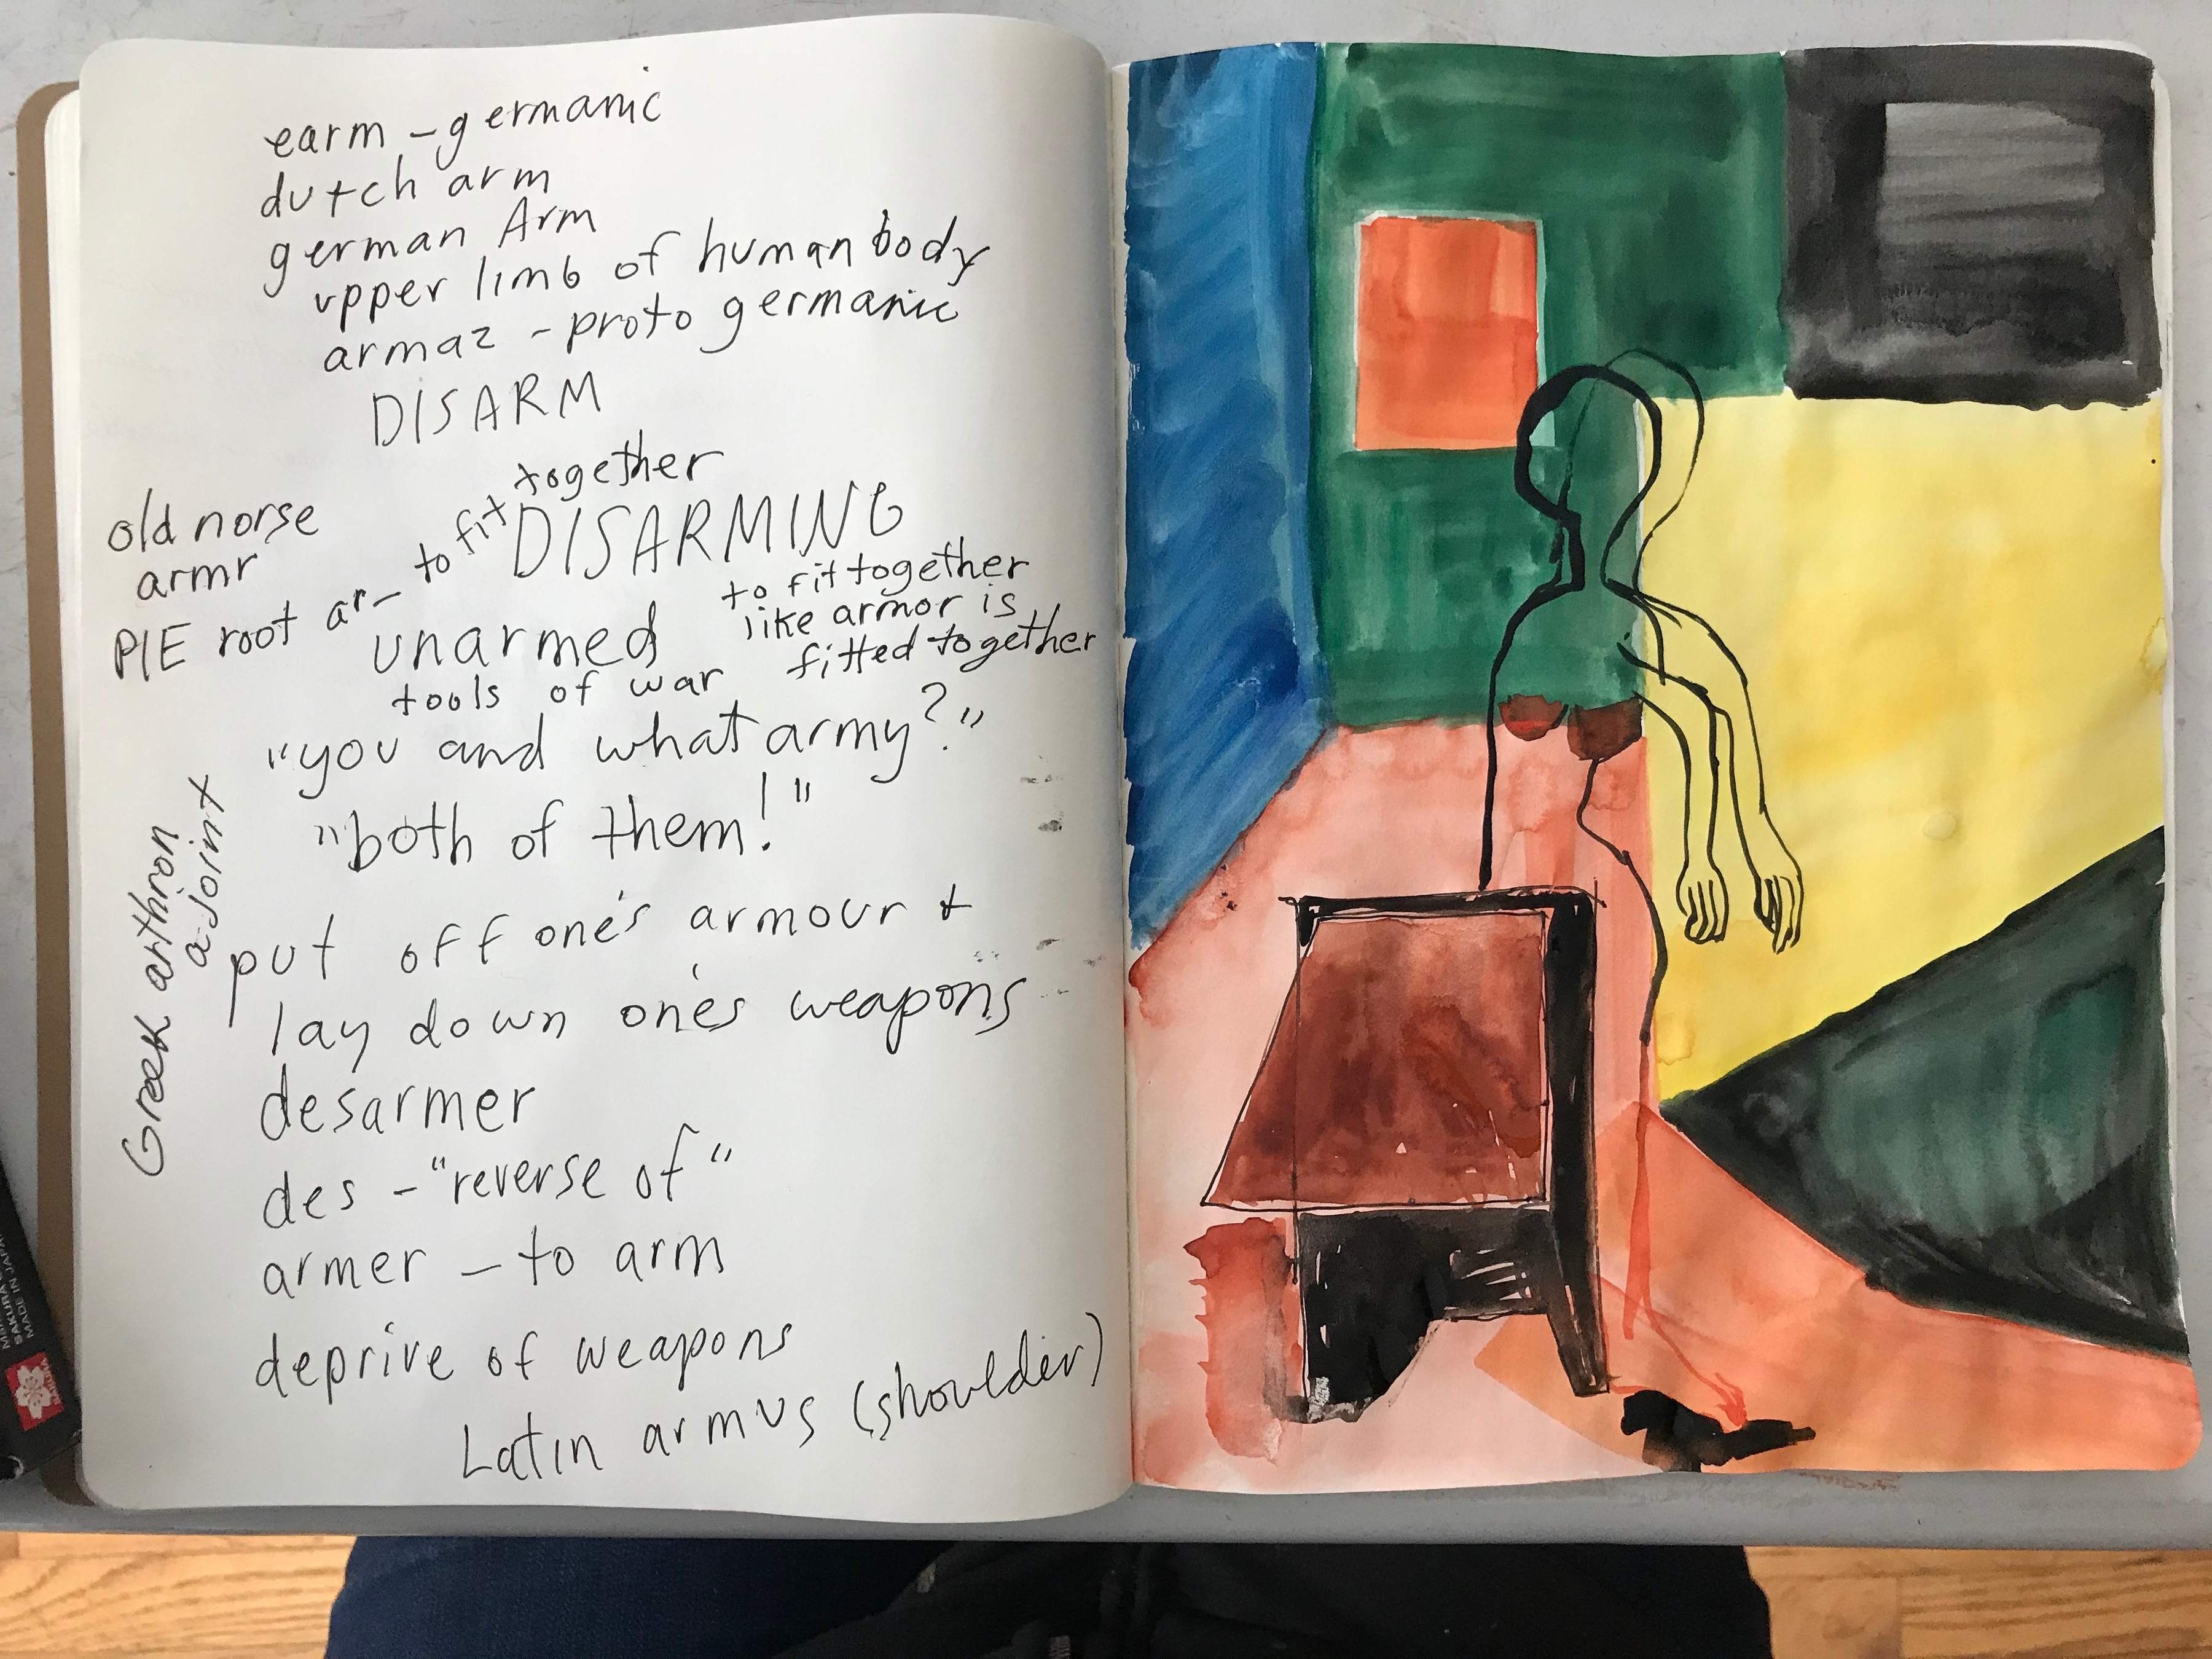 earm – germanic
dutch arm
german Arm
upper limb of human body
armaz - proto germanic
DISARM
old norse
armr
PIE root ar– to fit together
DISARMING
to fit together
like armor is
fitted together
unarmed
tools of war
"you and what army?"
"both of them!"
Greek arthron
a joint
put off one's armour +
lay down one's weapons
desarmer
des – "reverse of"
armer – to arm
deprive of weapons
Latin armus (shoulder)
SAKURA
MADE IN JAPAN